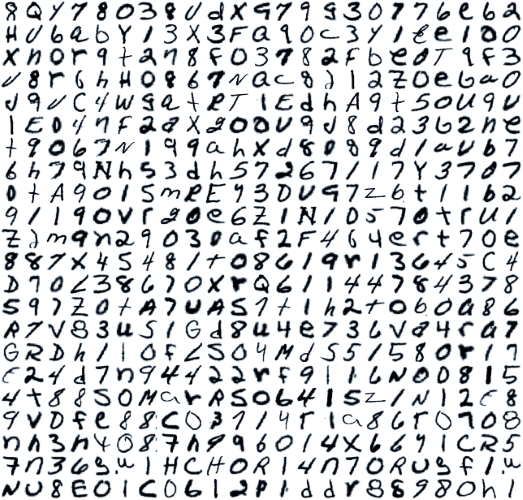 8 Q Y 7 8 0 3 8 U d X 9 7 9 9 3 0 7 7 6 e 6 2
H U 6 a b Y 1 3 X 3 F a 9 0 C 3 Y 1 e e 1 0 0
X n 0 r 9 t 2 n 8 f 0 3 7 8 2 f b e 0 T 9 f 3
U 8 r 6 h H 0 8 6 7 N a c 8 2 1 2 Z 0 e 6 a 0
J 9 U C 4 W 9 a t R T 1 E d h A 9 t 5 0 U 9 U
1 E 0 4 n F 2 8 X 2 0 0 U 9 J 8 d 2 3 6 2 n e
t 9 0 6 7 N 1 9 9 a h X d 8 0 8 9 d 1 a U b 7
6 h 7 9 N h 5 3 d h 5 7 2 6 7 1 1 7 Y 3 7 0 7
0 t A 9 0 1 5 m R E Y 3 D U 9 7 Z 6 t 1 1 b 2
9 1 1 9 0 V r 9 0 e 6 Z 1 N 1 0 5 7 0 t r U 1
Z 2 m 9 n 2 9 0 3 0 a f 2 F 4 6 4 e r t 7 0 e
8 8 7 X 4 5 4 8 1 t 0 8 6 1 9 r 1 3 6 4 5 C 4
D 7 0 2 3 8 6 7 0 X r Q 6 1 1 4 4 7 8 4 3 7 8
5 9 7 Z 0 t A 7 U A S 7 t 1 h 2 t 0 6 0 a 8 6
R 7 V 8 3 u 5 1 G d 8 u 4 e 7 3 6 V 8 4 r a 7
G R D h 1 1 0 f 2 5 0 4 M d 5 5 1 5 8 0 r 1 7
2 2 4 d 7 n 9 4 4 2 2 r f 9 1 1 6 N 0 0 8 1 5
4 t 8 8 5 0 M a r A S 0 6 4 1 5 Z 1 N 1 2 8 8
9 V D f e 8 8 C 0 3 7 1 4 r 1 a 8 6 r 0 7 0 8
n h 3 n 4 0 8 7 h 9 9 6 0 1 4 X 6 6 9 1 C R 5
7 n 3 6 9 u 1 H C H 0 R 1 4 n 7 0 R U 9 f 1 u
N U 8 E 0 1 C 0 6 1 2 P 1 d d r 8 8 9 8 0 h 1